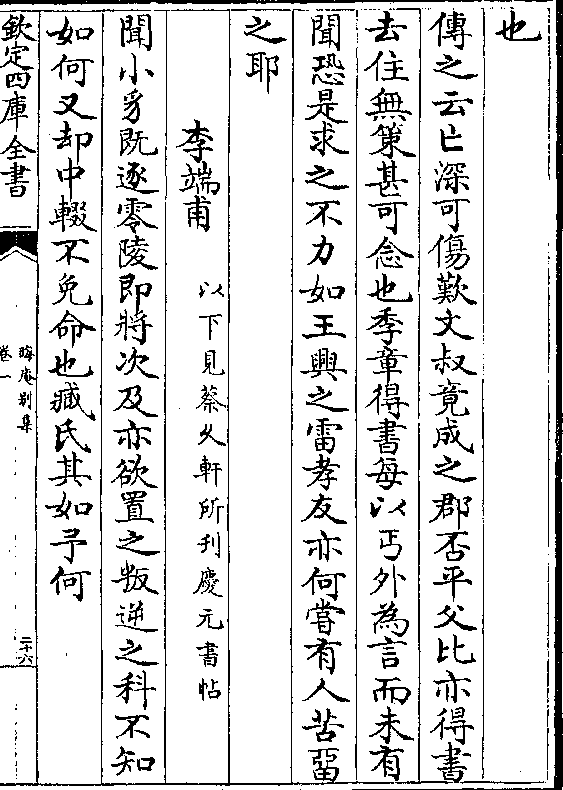 也
傳之云亡深可傷歎文叔竟成之郡否平父比亦得書
去住無策甚可念也季章得書每以丐外為言而未有
聞恐是求之不力如王興之雷孝友亦何嘗有人苦留
之耶
李端甫 以下見蔡久軒所刊慶元書帖
聞小豸既逐零陵即將次及亦欲置之叛逆之科不知
如何又却中輟不免命也臧氏其如予何
欽定四庫全書
晦庵别集
卷一
二十六